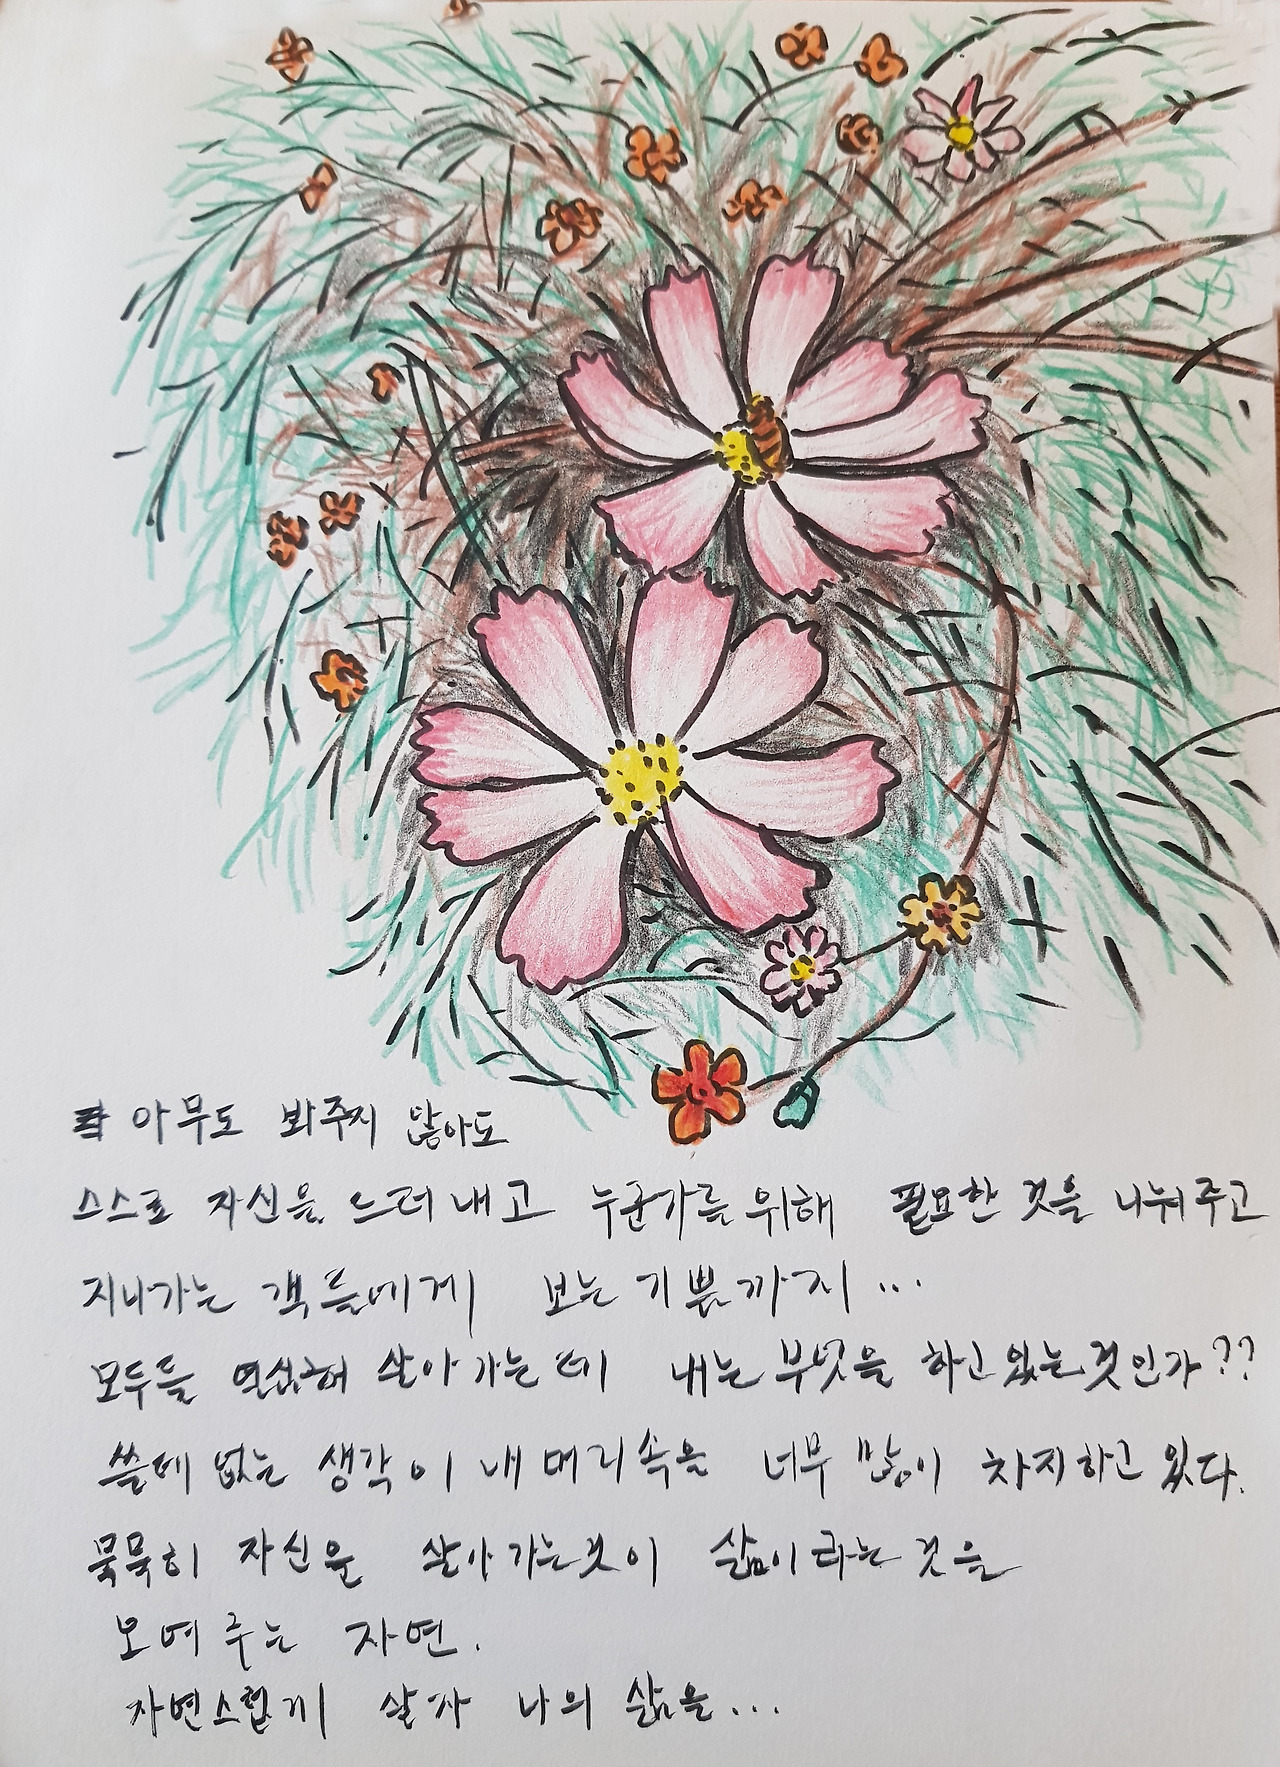 아무도 봐주지 않아도
스스로 자신을 드러내고 누군가를 위해 필요한 것을 나눠주고
지나가는 객들에게 보는 기쁨까지...
모두들 열심해 살아가는데 내는 무엇을 하고 있는것인가??
쓸데 없는 생각이 내 머리속을 너무 많이 차지하고 있다.
묵묵히 자신을 살아가는것이 삶이라는 것을
보여주는 자연.
자연스럽게 살자 나의 삶을...